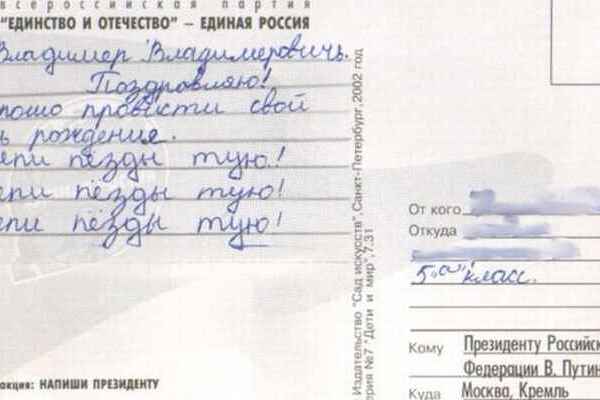 всероссийская партия
"ЕДИНСТВО И ОТЕЧЕСТВО" – ЕДИНАЯ РОССИЯ
Владимер Владимеровичь.
Поздравляю!
рошо провисти свой
ь рождения.
епи пёзды тую!
епи пёзды тую!
епи пёзды тую!
акция: НАПИШИ ПРЕЗИДЕНТУ
Издательство "Сад искусств", Санкт-Петербург, 2002 год
ерия №7 "Дети и мир", 7.31
От кого
Откуда
5 "а" класс.
Кому Президенту Российск
Федерации В. Путин
Куда Москва, Кремль